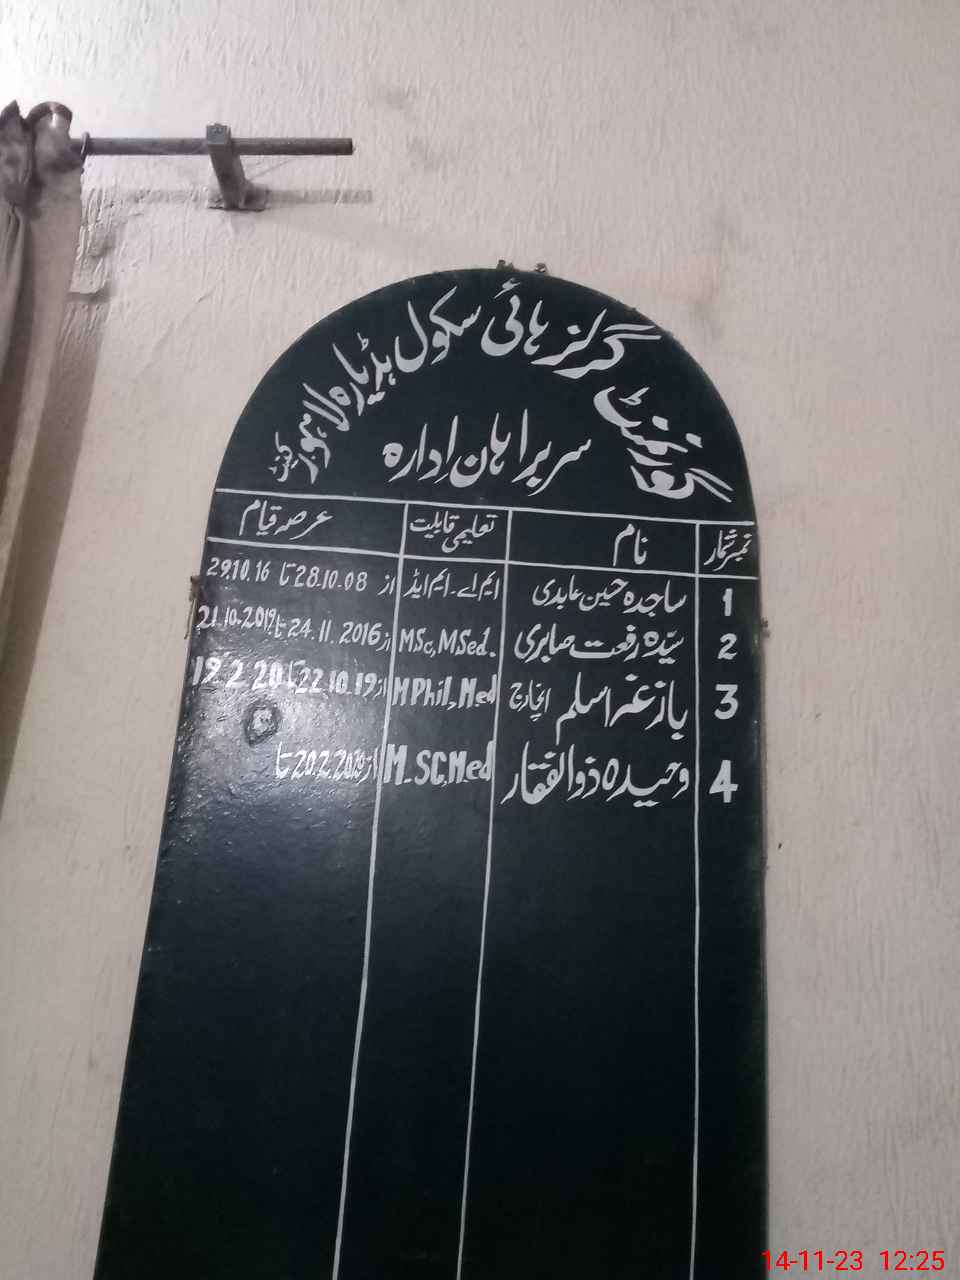 گورنمنٹ گرلز ہائی سکول ہڈیارہ لاہور کینٹ
سربراہان اِدارہ
نمبر شمار نام تعلیمی قابلیت عرصہ قیام
1 ساجدہ حسین عابدی ایم اے۔ ایم ایڈ از 28.10-08 تا 29.10.16
2 سیّدہ رفعت صابری MSc, MSed. از 24.11.2016 تا 21.10.2019
3 بازغہ اسلم انچارج MPhil, Med از 22.10.19 تا 19.2.20
4 وحیدہ ذوالفقار M.SC,Med از 20.2.2020 تا
14-11-23 12:25